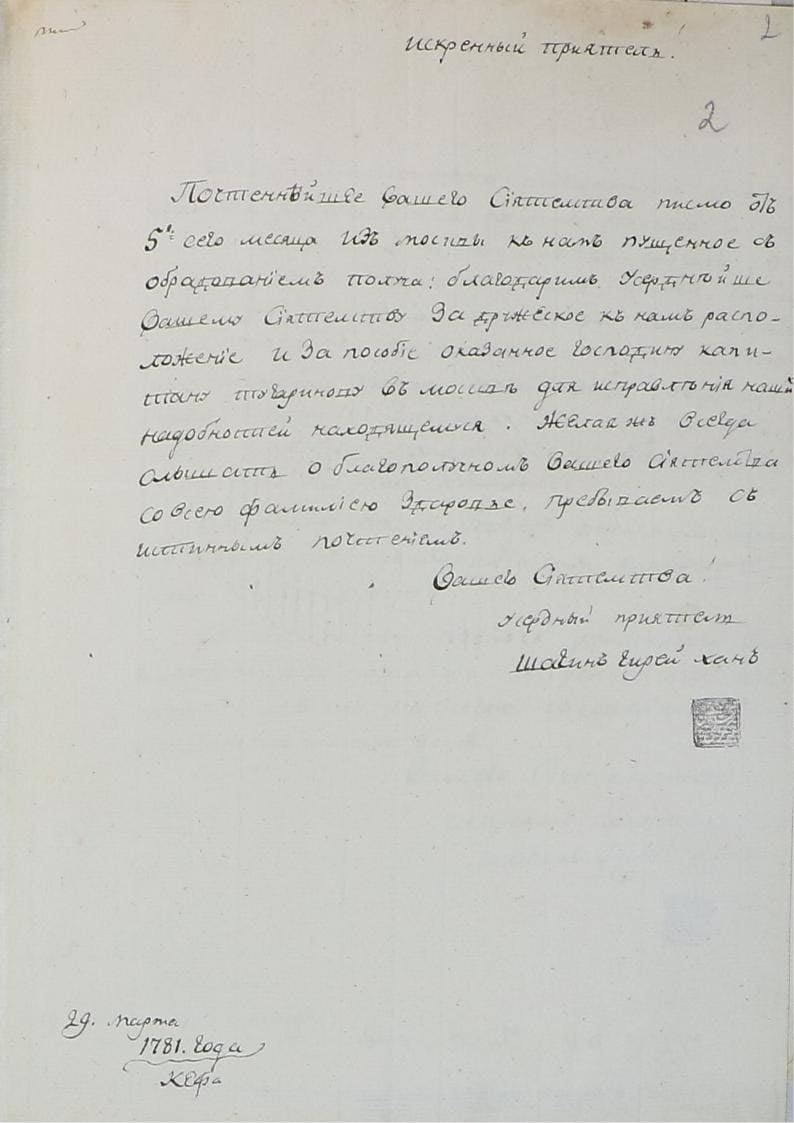 2
искренный приятель.
2
Почтеннѣйшее вашего Сіятельства писмо отъ
5г: сего месяца изъ москвы къ намъ пущенное съ
обрадованіемъ получа; благодаримъ усерднѣйше
вашему Сіятельству за дружеское къ намъ распо-
ложеніе и за пособіе оказанное господину капи-
тану тугаринову въ москвѣ для исправленія нашей
надобностей находящемуся. Желая жъ всегда
слышать о благополучномъ вашего сіятельства
со всею фамиліею здаровье, пребываемъ съ
истиннымъ почтеніемъ.
вашего Сіятельства!
усердный приятель
Шагинъ гирей ханъ
29. марта
1781. года
Кефа